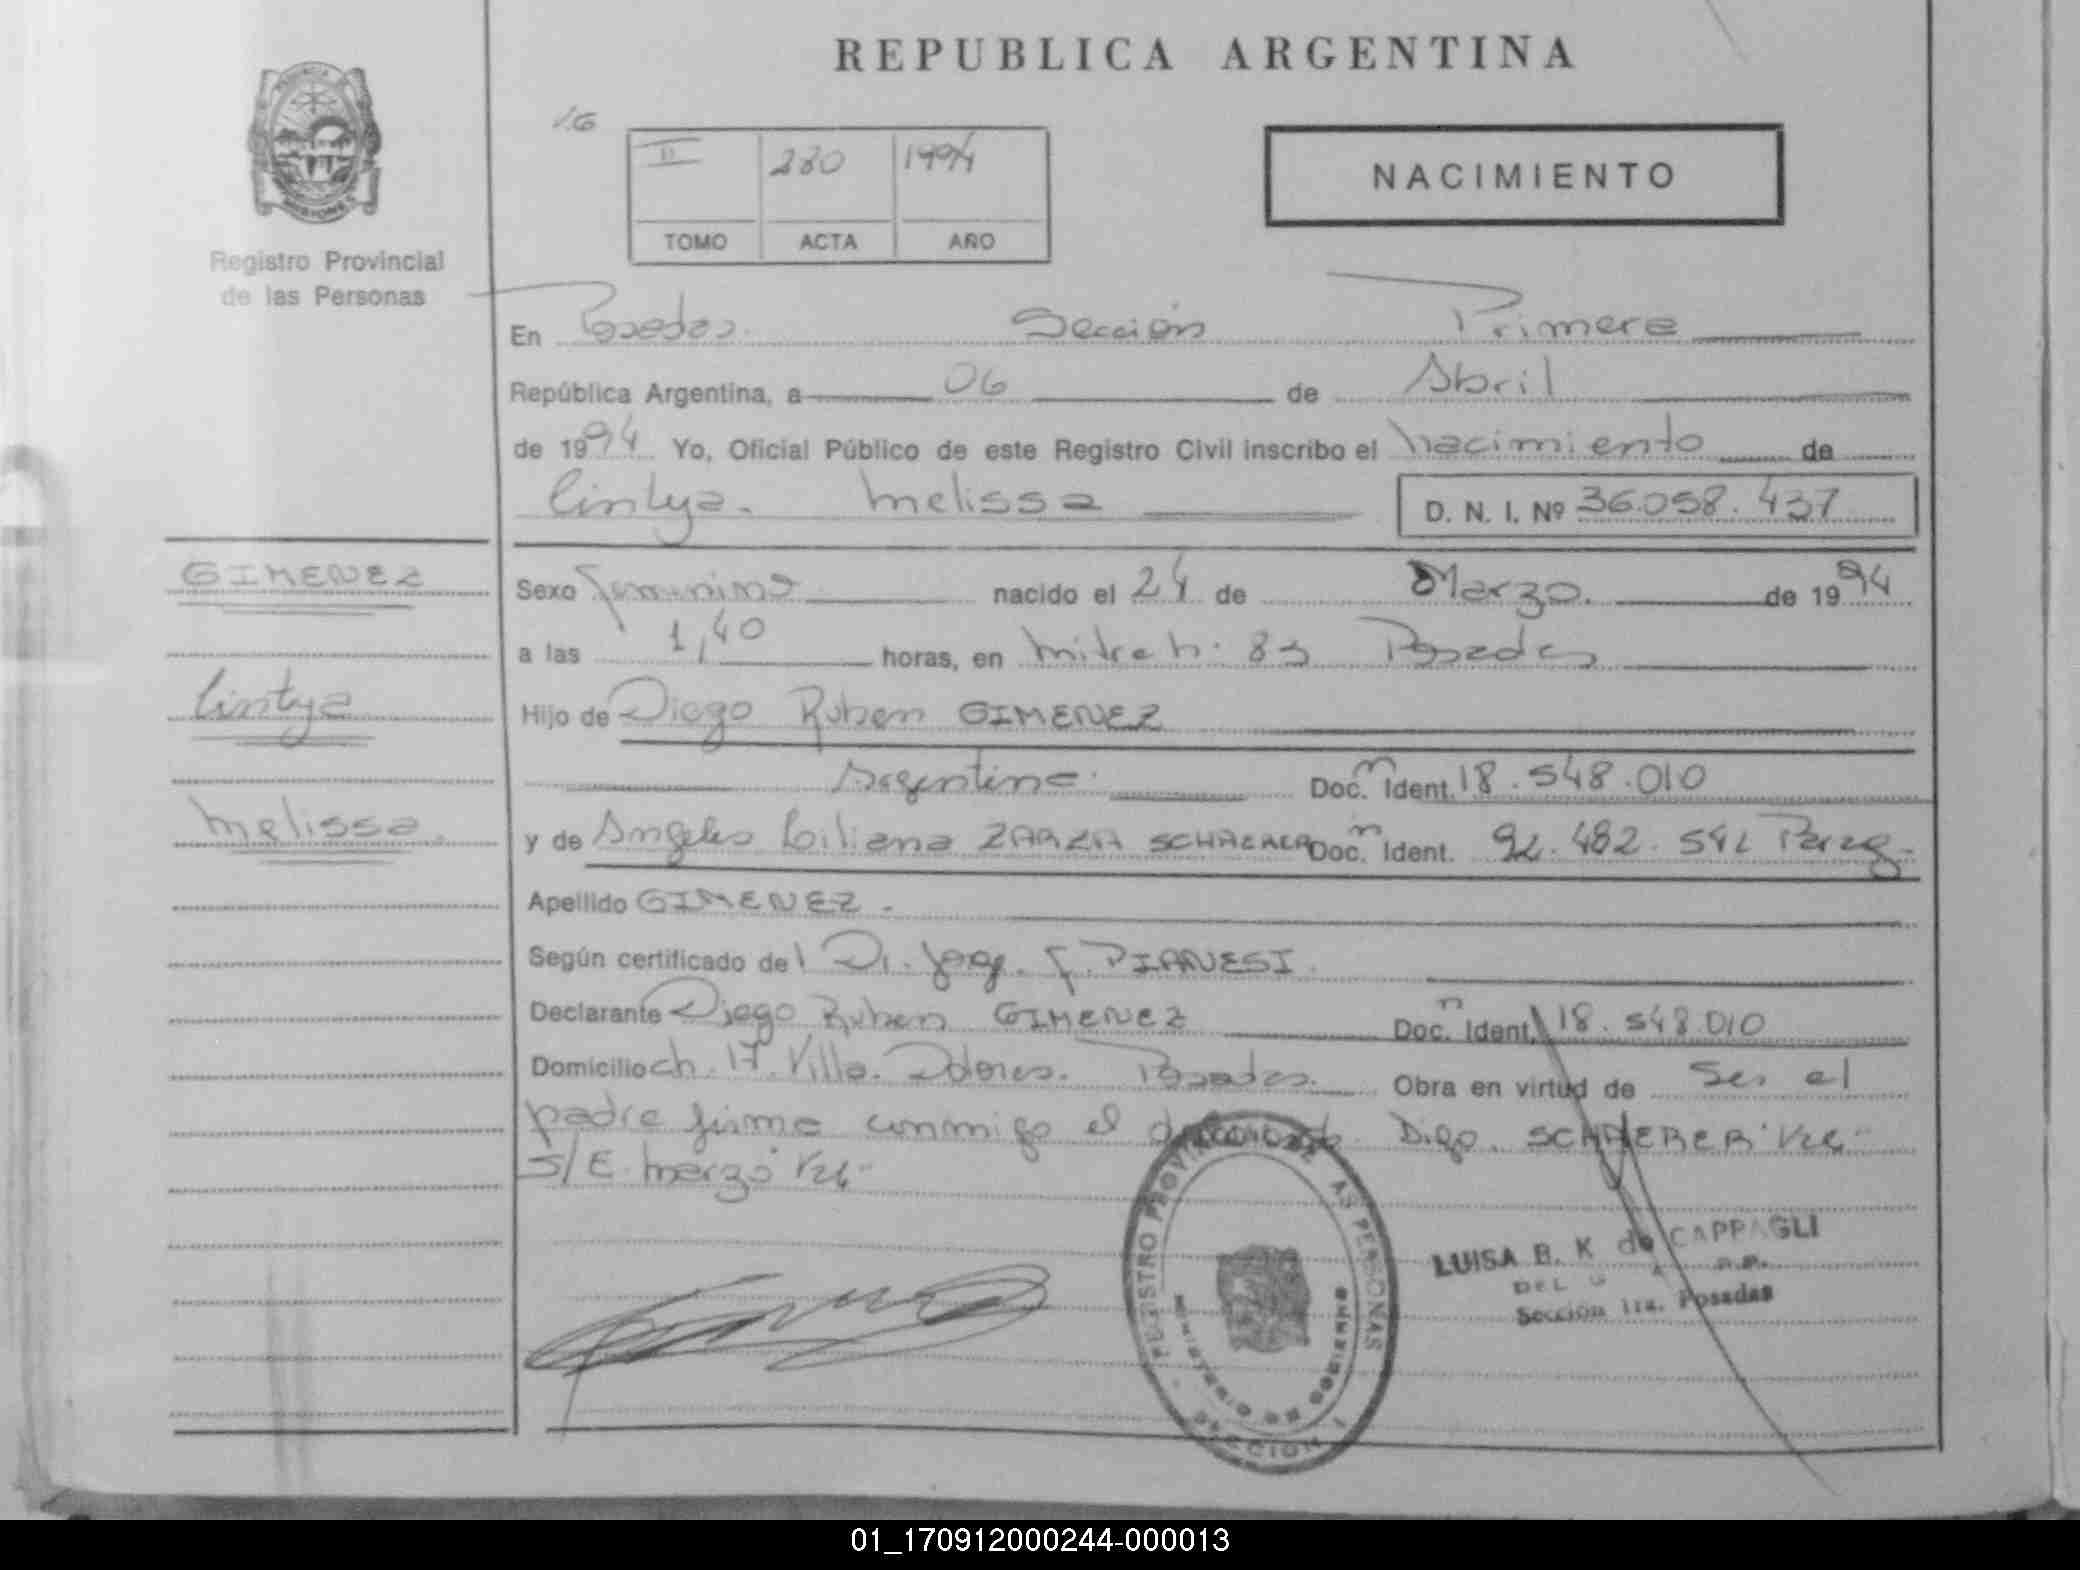 REPUBLICA ARGENTINA
MISIONES
Registro Provincial
de las Personas
II 230 1994
TOMO ACTA AÑO
NACIMIENTO
En Posadas. Sección Primera
República Argentina, a 06 de Abril
de 1994 Yo, Oficial Público de este Registro Civil inscribo el nacimiento de
Cintya. Melissa D. N. I. Nº 36.058.437
GIMENEZ
Cintya
Melissa.
Sexo femenino nacido el 24 de Marzo. de 1994
a las 1,40 horas, en Mitre n. 83 Posadas
Hijo de Diego Ruben GIMENEZ
Argentino. Doc. n Ident. 18.548.010
y de Angeles Liliana ZARZA Doc. n Ident. 92.482.542 Parag.
Apellido GIMENEZ.
Según certificado del Dr. Jorg. F. PIANESI
Declarante Diego Ruben GIMENEZ Doc. n Ident. 18.548.010
Domicilio ch. 17. Villa. Dolores. Posadas. Obra en virtud de Ser el
padre firma conmigo el Digo. SCHAERER Vle-
S/E. marzo Vle-
REGISTRO PROVINCIAL DE LAS PERSONAS
MINISTERIO DE GOBIERNO
SECCION 1
LUISA B. K de CAPPAGLI
DEL
Sección 1ra. Posadas
01_170912000244-000013